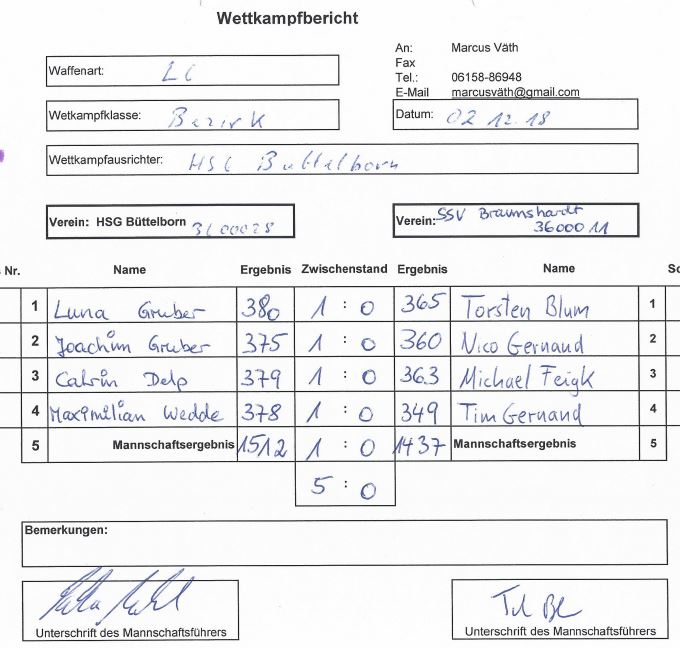 Wettkampfbericht
An: Marcus Väth
Fax
Tel.: 06158-86948
E-Mail marcusväth@gmail.com
Waffenart: LG
Wetkampfklasse: Bezirk
Datum: 02 12.18
Wettkampfausrichter: HSG Büttelborn
Verein: HSG Büttelborn 3600028
Verein: SSV Braunshardt
3600011
s Nr. Name Ergebnis Zwischenstand Ergebnis Name Sc
1 Luna Gruber 380 1 : 0 365 Torsten Blum 1
2 Joachim Gruber 375 1 : 0 360 Nico Gernand 2
3 Catrin Delp 379 1 : 0 363 Michael Feigk 3
4 Maximilian Wedde 378 1 : 0 349 Tim Gernand 4
5 Mannschaftsergebnis 1512 1 : 0 1437 Mannschaftsergebnis 5
5 : 0
Bemerkungen:
Unterschrift des Mannschaftsführers
Unterschrift des Mannschaftsführers